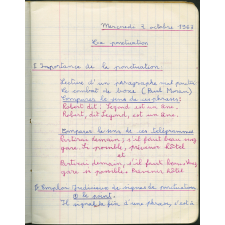 Mercredi 3 octobre 1963
La ponctuation
I Importance de la ponctuation
Lecture d'un paragraphe mal ponctué
Le combat de boxe (Paul Morain)
Comparer le sens de ces phrases:
Robert dit: Legend est un âne.
Robert, dit Legend, est un âne.
Comparer le sens de ces télégrammes
Partirai demain; s'il faut beau voy-
age. Le possible, prévenir hôtel
et
Partirai demain, s'il faut beau. Voy
age si possible. Prévenir hôtel
II Emploi judicieux de signes de ponctuation
a) Le point.
Il signale la fin d'une phrase, c'est à